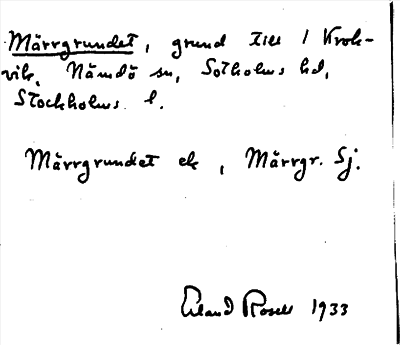 Märrgrundet, grund till 1 Krok-
vik. Nämdö sn, Sotholms hd,
Stockholms l.
Märrgrundet ek, Märrgr. Sj.
Erland Rosell 1933